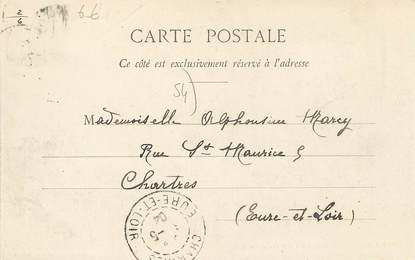 6.6
CARTE POSTALE
Ce côté est exclusivement réservé à l'adresse
54
Mademoiselle Alphonsine Marcy
Rue St Maurice 5
Chartres
(Eure-et-Loir)
EURE-ET-LOIR